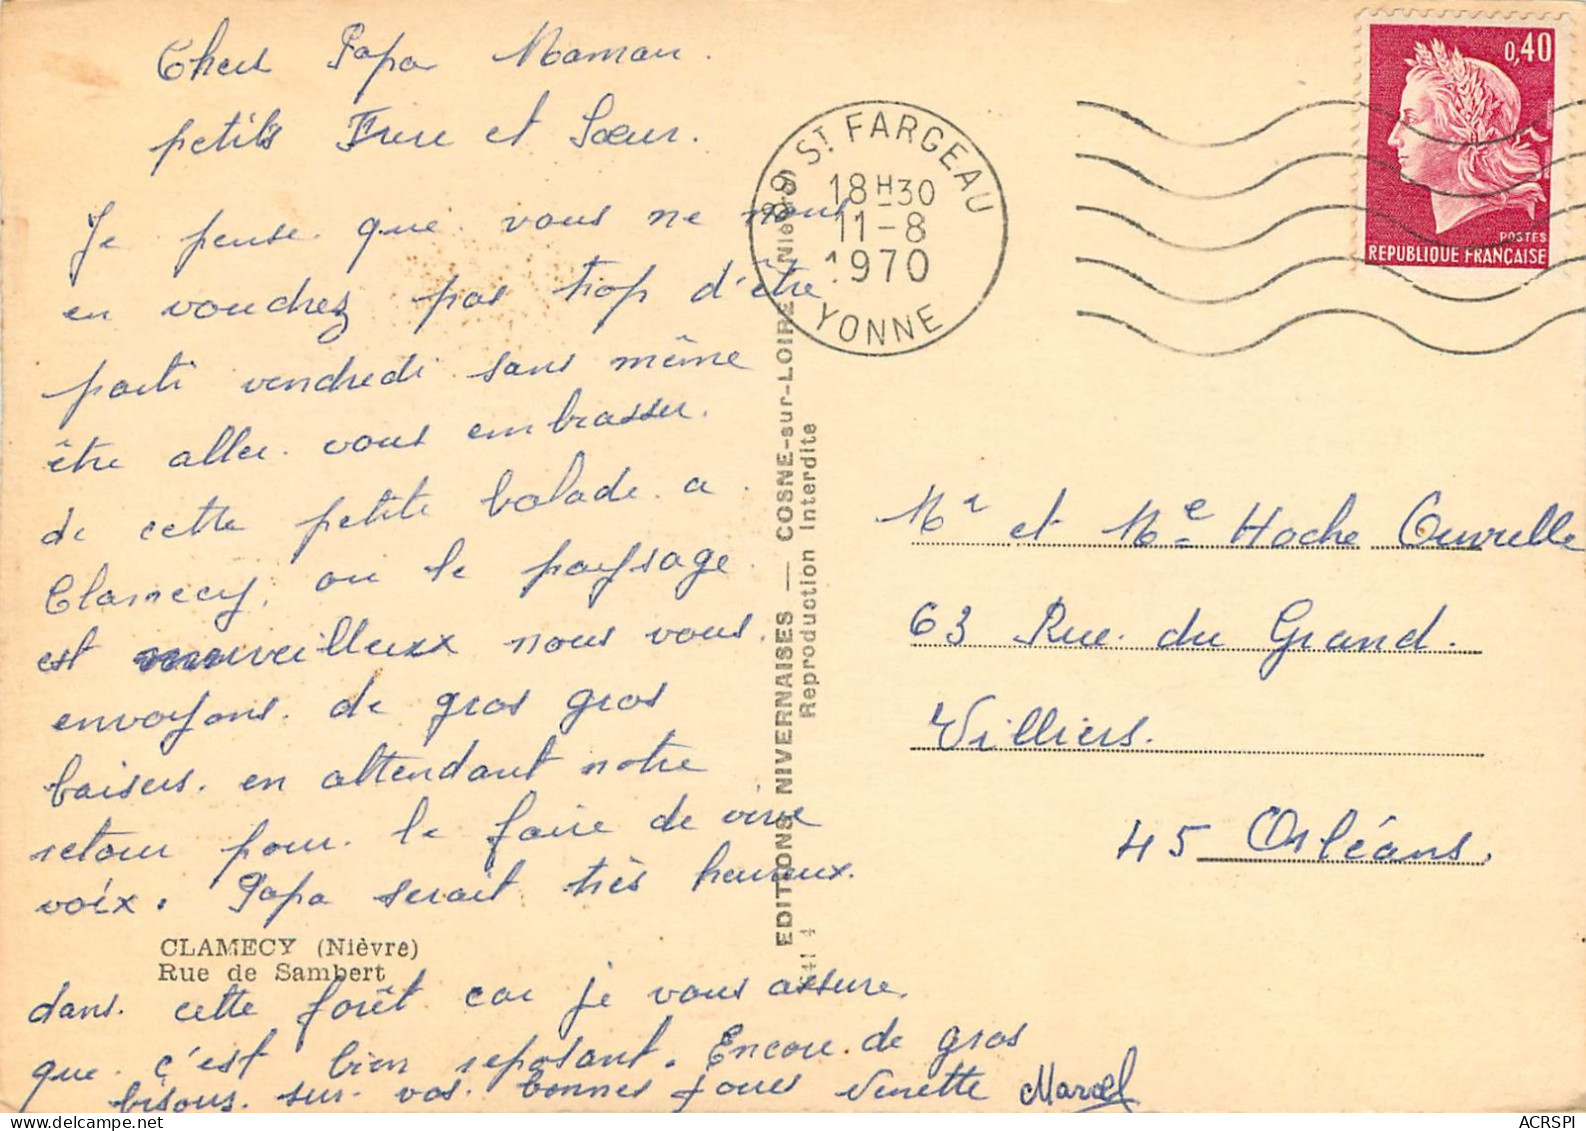 Chers Papa Maman.
petits Frere et Sœur.
Je pense que vous ne nous
en voudrez pas trop d'être
parti vendredi sans même
être aller vous embrasser.
de cette petite balade a
Clamecy, ou le paysage
est merveilleux nous vous
envoyons de gros gros
baisers en attendant notre
retour pour le faire de vive
voix. Papa serait très heureux
CLAMECY (Nièvre)
Rue de Sambert
dans cette forêt car je vous assure
que c'est bien reposant. Encore de gros
bisous sur vos bonnes joues Marcel
EDITIONS NIVERNAISES — COSNE-sur-LOIRE (Nièvre)
Reproduction Interdite
89 ST FARGEAU
18H30
11-8
1970
YONNE
0,40
POSTES
REPUBLIQUE FRANÇAISE
Mr et Me Hoche
63 Rue du Grand
Villiers.
45 Orléans.
ACRSPI